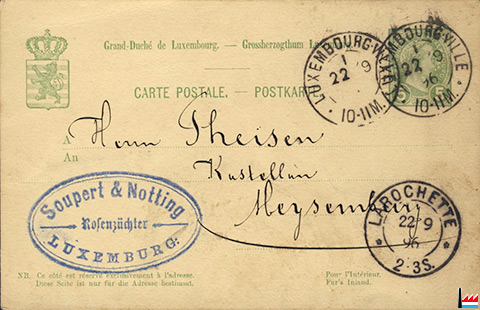 Grand-Duché de Luxembourg. – Grossherzogthum
LUXEMBOURG-VILLE
1
22 9
10-11M.
LUXEMBOURG-VILLE
1
22 9
96
10-11M.
CARTE POSTALE. – POSTKARTE
A
An
Herrn Theisen
Kastellan
Meysemburg
Soupert & Notting
Rosenzüchter
LUXEMBURG.
LAROCHETTE
22 9
96
2-3S.
NB. Ce côté est réservé exclusivement à l'adresse.
Diese Seite ist nur für die Adresse bestimmt.
Pour l'Intérieur.
Für's Inland.